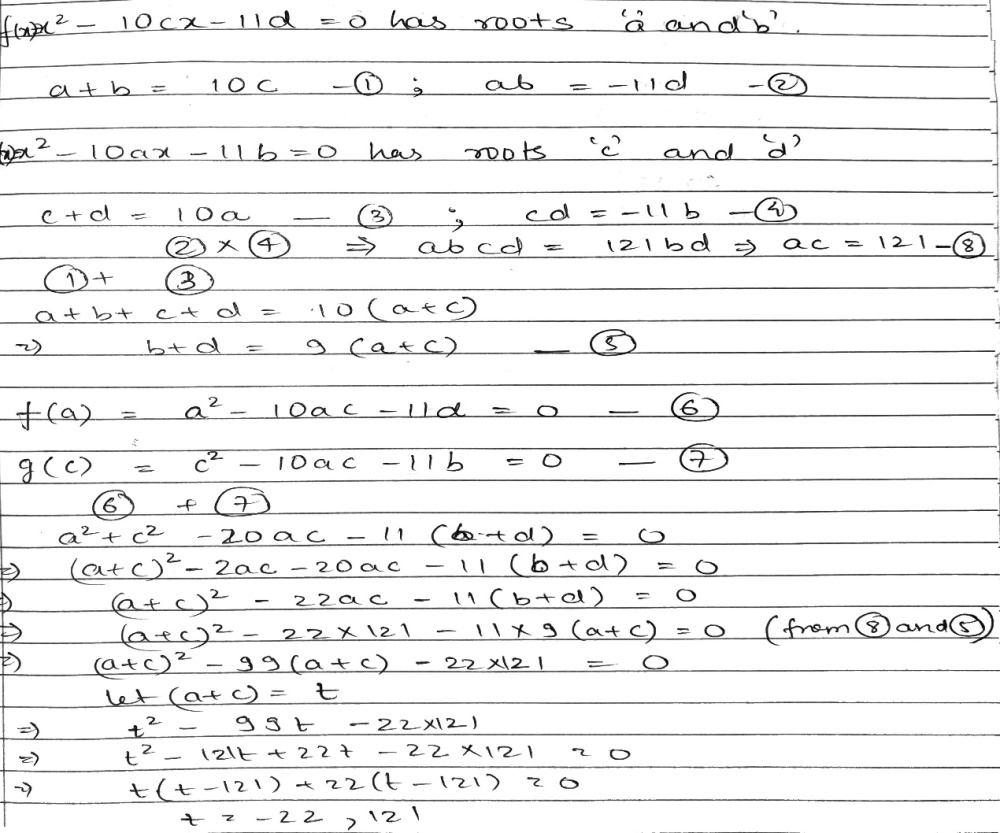 f(x)x² - 10cx - 11d = 0 has roots 'a' and 'b'.
a + b = 10c - ① ; ab = -11d - ②
x² - 10ax - 11b = 0 has roots 'c' and 'd'
c + d = 10a — ③ ; cd = -11b - ④
② × ④ ⇒ abcd = 121bd ⇒ ac = 121 - ⑧
① + ③
a + b + c + d = 10(a+c)
⇒ b + d = 9(a+c) — ⑤
f(a) = a² - 10ac - 11d = 0 — ⑥
g(c) = c² - 10ac - 11b = 0 — ⑦
⑥ + ⑦
a² + c² - 20ac - 11(b+d) = 0
⇒ (a+c)² - 2ac - 20ac - 11(b+d) = 0
⇒ (a+c)² - 22ac - 11(b+d) = 0
⇒ (a+c)² - 22×121 - 11×9(a+c) = 0 (from ⑧ and ⑤)
⇒ (a+c)² - 99(a+c) - 22×121 = 0
let (a+c) = t
⇒ t² - 99t - 22×121
⇒ t² - 121t + 22t - 22×121 = 0
⇒ t(t-121) + 22(t-121) = 0
t = -22, 121